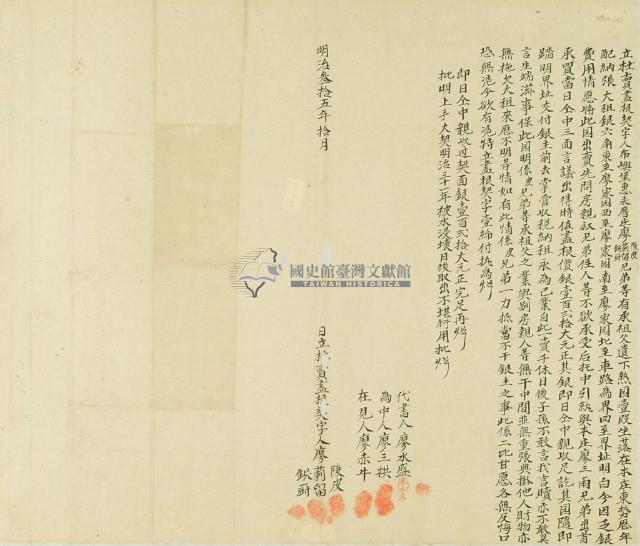 立杜賣盡根契字人布嶼堡惠來厝庄廖陳皮萷留鈇厨兄弟等有承祖父遺下熟园壹段坐落在本庄東勢厝年
配納張大租銀六角東至廖家园西至廖家园南至廖家园北至車路為界四至界址明白今因乏銀
費用情愿將此园出賣先問房親叔兄弟侄人等不欲承受后托中引就與本庄廖三兩兄弟出首
承買當日仝中三面言議出得時值盡根價銀壹百弍拾大元正其銀即日仝中親收足訖其园隨即
踏明界址交付銀主前去掌管收稅納租永為己業自此一賣千休日後子孫不敢言找言贖亦不敢異
言生端滋事保此园明係皮兄弟等承祖父之業與別房親人等無干中間並無重張典掛他人財物亦
無拖欠大租來歷不明等情如有此情係皮兄弟一力抵當不干銀主之事此係二比甘愿各無反悔口
恐無憑今欲有憑特立盡根契字壹紙付执為炤
即日仝中親收过契面銀壹百弍拾大元正完足再炤
批明上手大契明治三十一年被水浸壞日後取出不堪行用批炤
代書人廖永盛
為中人廖三拱
在見人廖赤牛
日立杜賣盡根契字人廖陳皮萷留鈇厨
明治叁拾五年拾月
國史館臺灣文獻館
TAIWAN HISTORICA